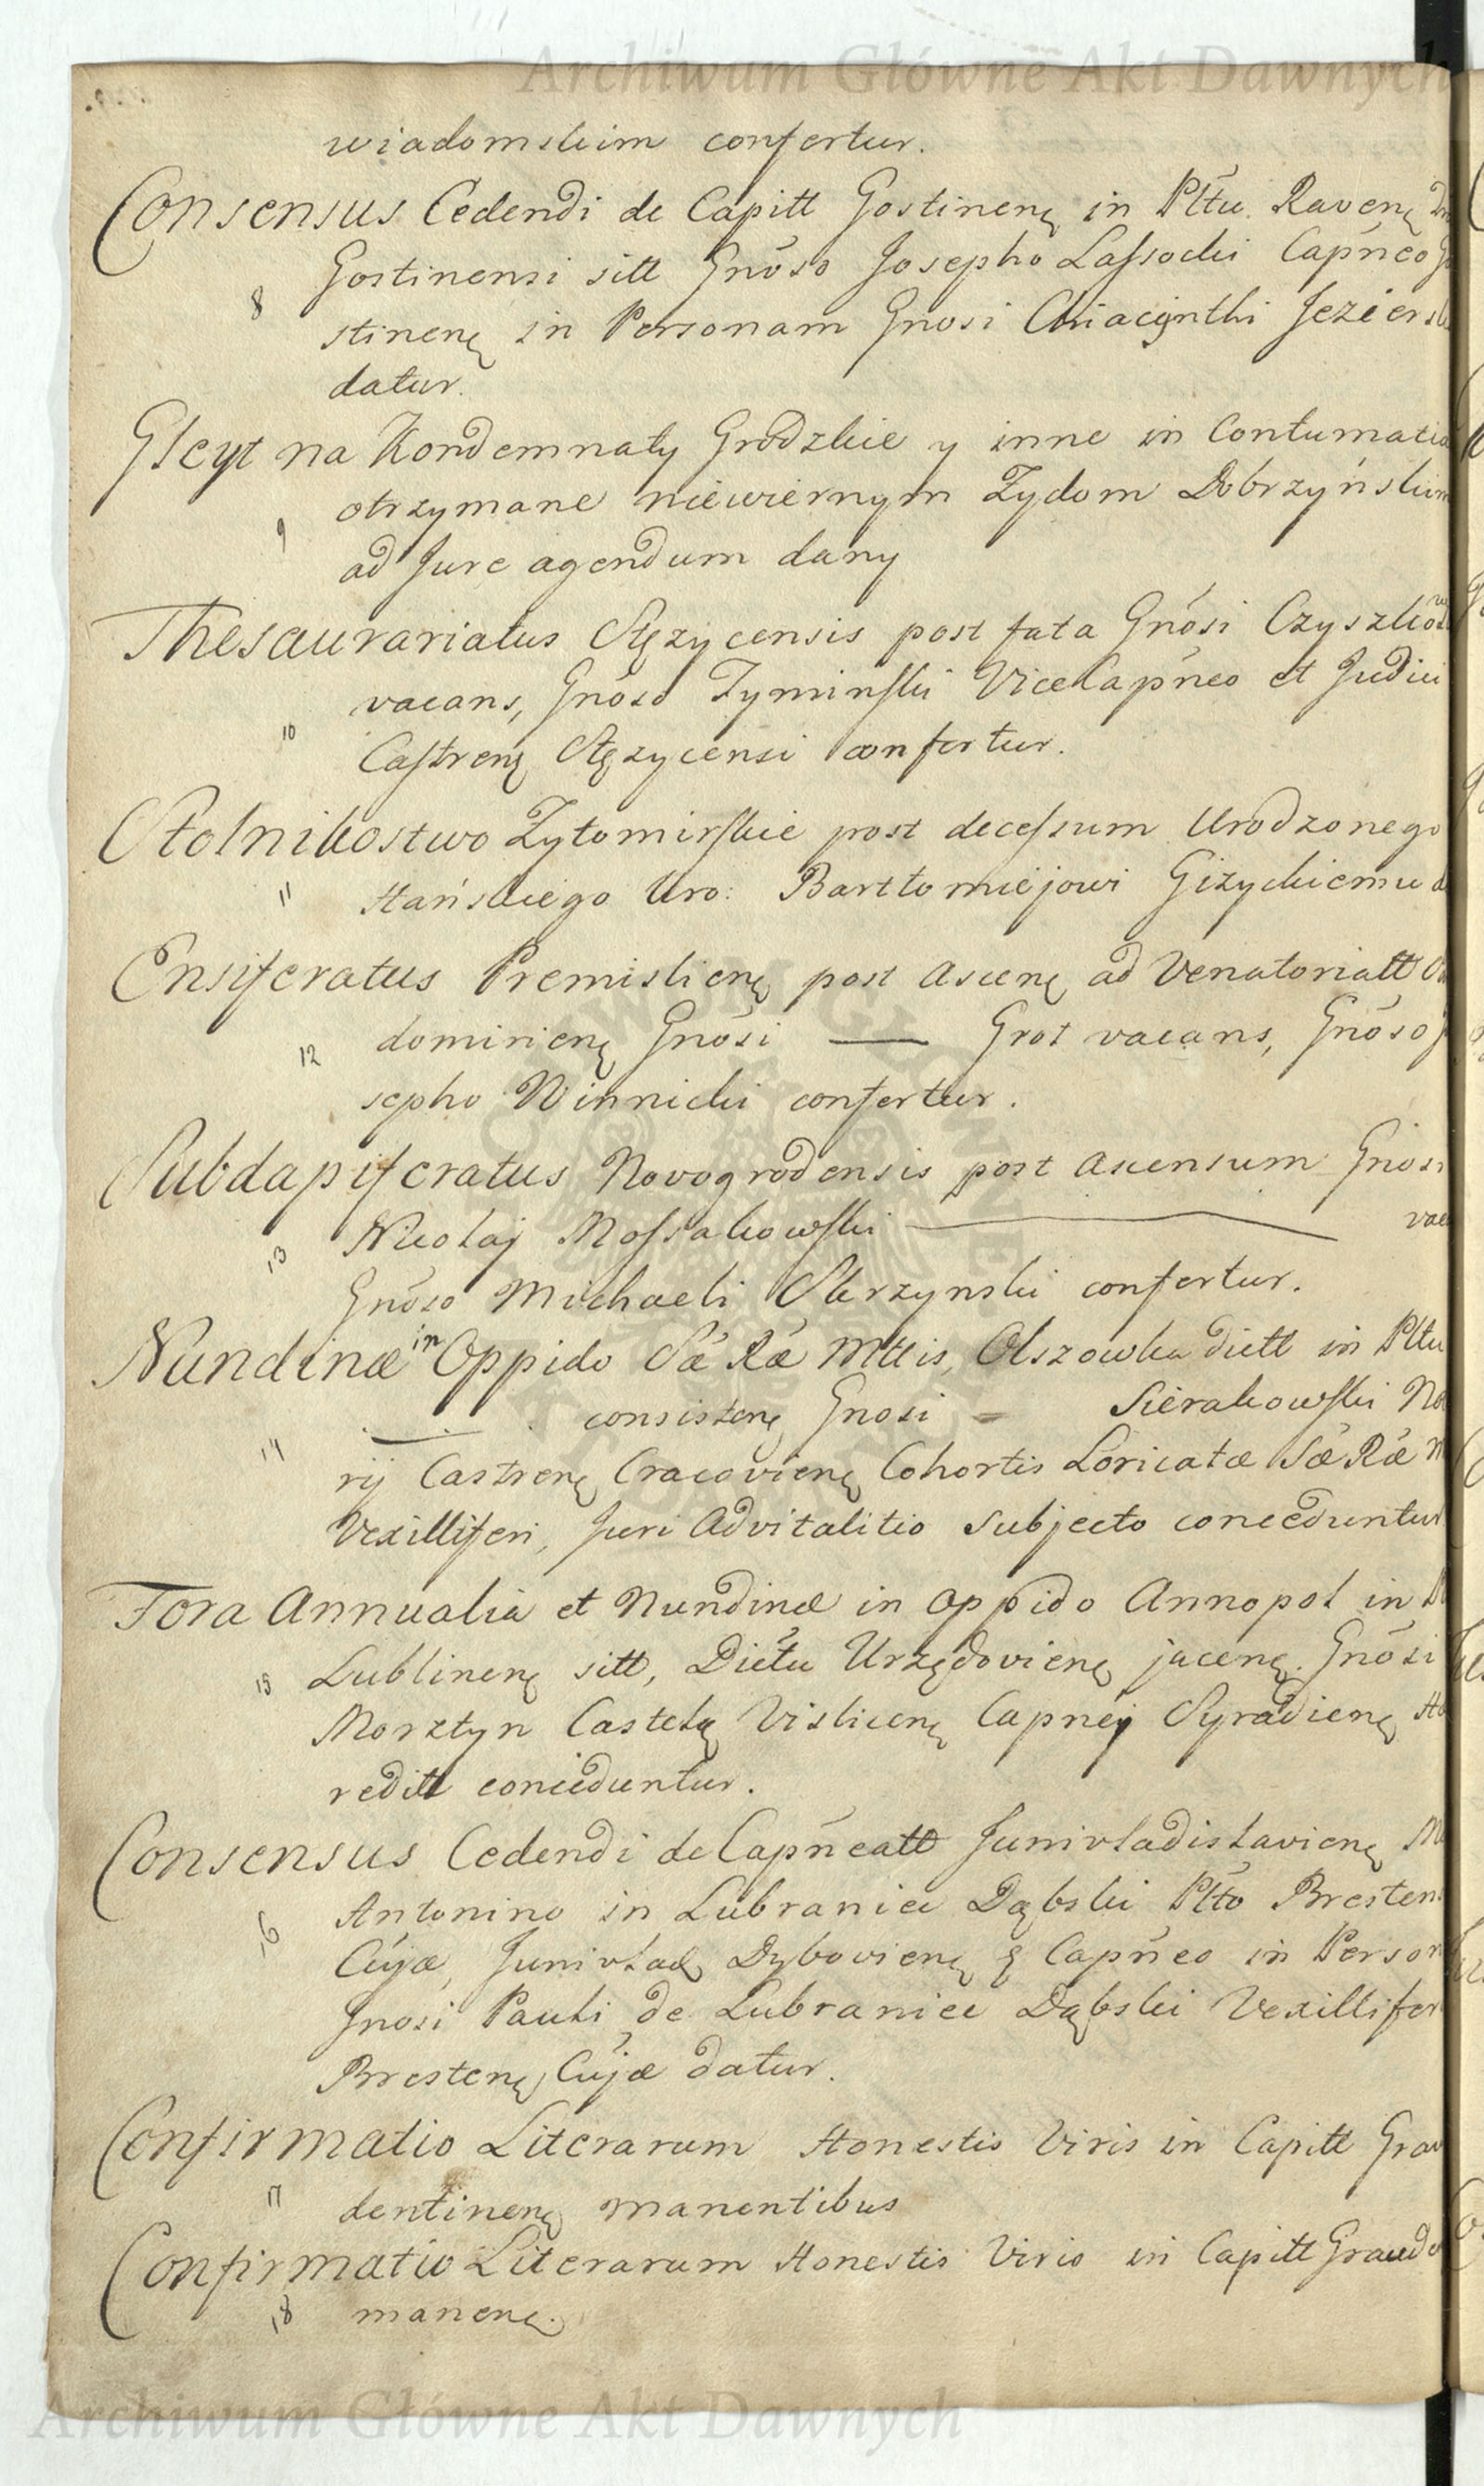 Archiwum Główne Akt Dawnych
wiadomskim confertur.
Consensus Cedendi de Capitt Gostinenę in Pltu Ravenę
Gostinensi sitt Gnoso Josepho Lassocki Capneo Go
8 stinenę in Personam Gnosi Chiacynthi Jezierski
datur.
Gleyt na Kondemnaty Grodzkie y inne in Contumatia
otrzymane niewiernym Zydom Dobrzyńskim
9 ad Jure agendum dany
Thesaurariatus Stęzycensis post fata Gnosi Czyszkow
vacans, Gnoso Tyminski ViceCapneo et Judici
10 Castrenę Stęzycensi confertur.
Stolnikostwo Zytomirskie post decessum Urodzonego
11 Hańskiego Uro: Barttomiejowi Gizyckiemu d
Ensiferatus Premislienę post Ascenę ad Venatoriatt
12 domirienę Gnosi — Grot vacans, Gnoso Jo
sepho Winnicki confertur.
Subdapiferatus Novogrodensis post ascensum Gnosi
Nicolaj Mossakowski — vac
13 Gnoso Michaeli Skrzynski confertur.
Nundinæ in Oppido Sæ Ræ Mttis, Olszowka dictt in Pltu
consistenę Gnosi — Sierakowski No
14 rij Castrenę Cracovienę Cohortis Loricatæ Sæ Ræ M
Vexilliferi, Juri Advitalitio Subjecto conceduntur
Fora Annualia et Nundinæ in Oppido Annopol in
15 Lublinenę sitt, Dictu Urzędovienę jacenę Gnosi
Morztyn Castelę Vislicenę Capnej Syradienę Hæ
reditt conceduntur.
Consensus Cedendi de Capneatt Junivladislavienę M
Antonino in Lubraniec Dąbski Pltto Bresten
16 Cujæ, Junivlad Dybovienę & Capneo in Person
Gnosi Pauli de Lubraniec Dąbski Vexillifer
Brestenę Cujæ datur.
Confirmatio Literarum Honestis Viris in Capitt Grau
17 dentinenę manentibus
Confirmatio Literarum Honestis Viris in Capitt Graude
18 manenę.
Archiwum Główne Akt Dawnych